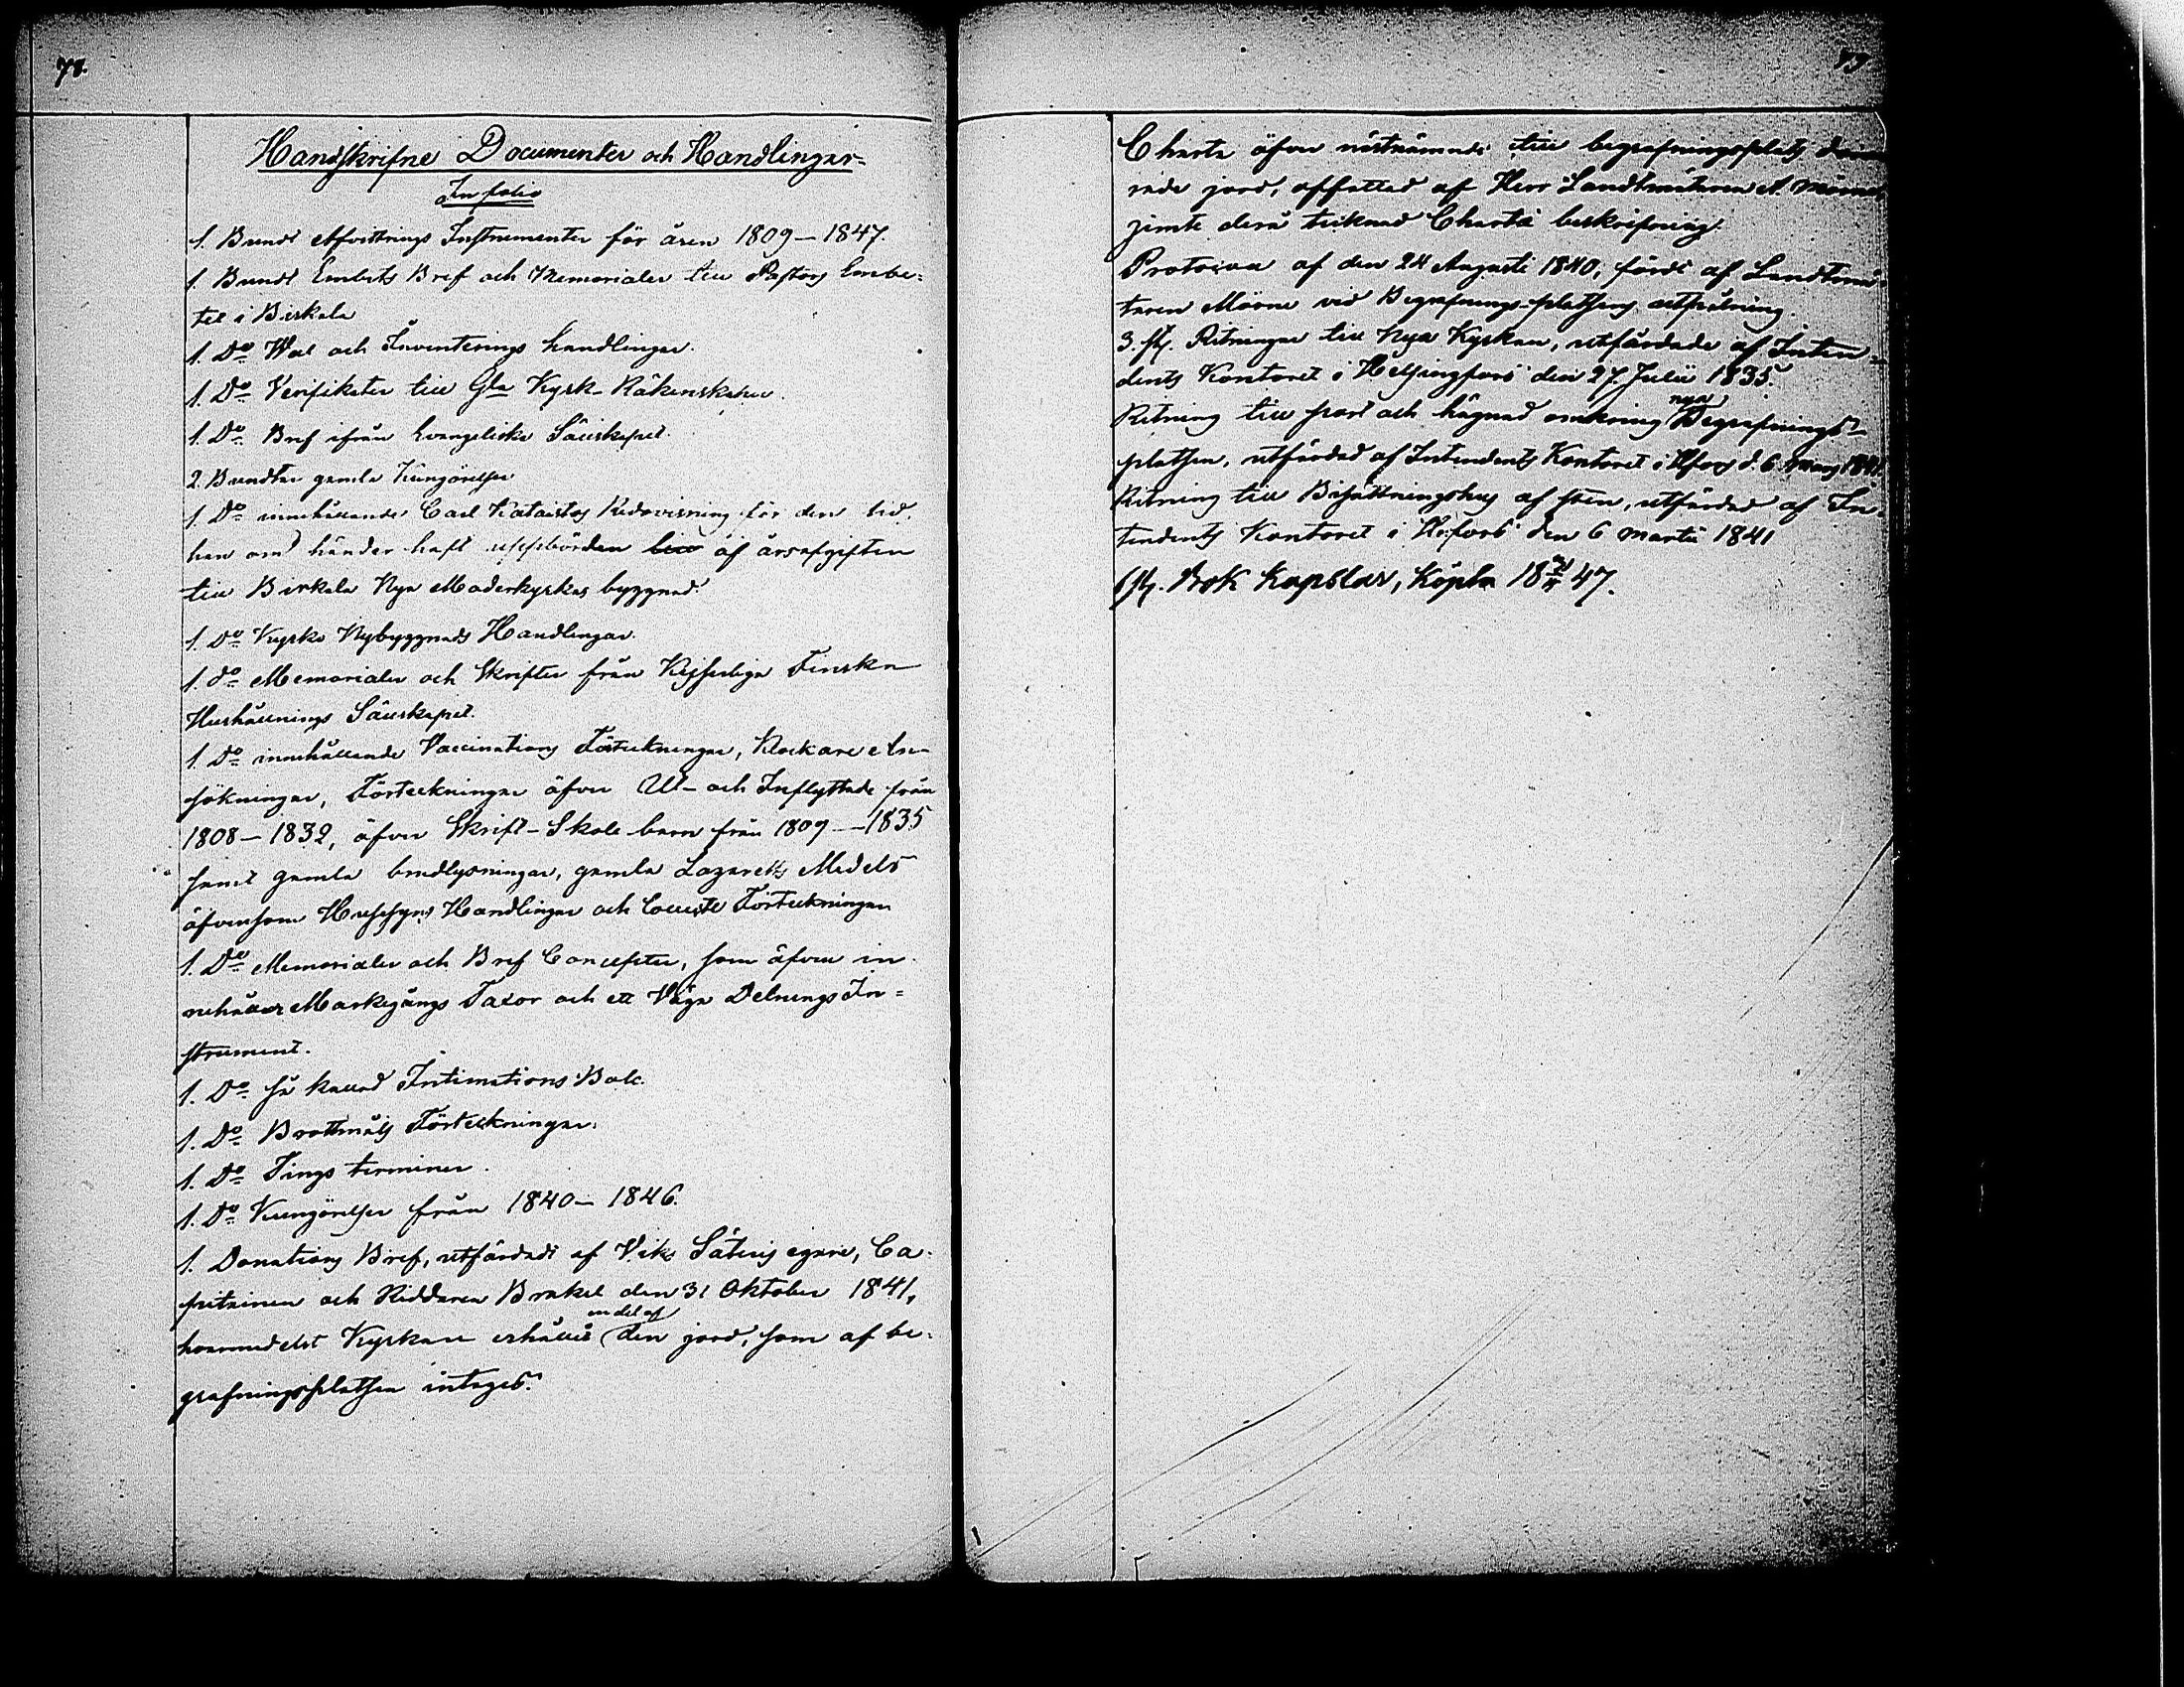 78.
Handskrifne Documenter och Handlingar
In folio
1. Bundt Afvittrings Instrumenter för åren 1809–1847.
1. Bundt Embets Bref och Memorialer till Pastors Embe-
tet i Birkala
1. Do Wal och Inventerings handlingar.
1. Do Verifikater till Gla Kyrk-Räkenskaper.
1. Do Bref ifrån Evangeliska Sällskapet.
2. Bundtar gamla Kungörelser
1. Do innehållande Carl Kataistos Redovisning för den tid,
han om händer haft uppbörden af årsafgiften
till Birkala Nya Moderkyrkas byggnad.
1. Do Kyrko Nybyggnads Handlingar.
1. do Memorialer och Skrifter från Kejserliga Finska
Hushållnings Sällskapet.
1. Do innehållande Vaccinations Förteckningar, Klockare An-
sökningar, Förteckningar öfver Ut- och Inflyttade från
1808–1832, öfver Skrift-Skole barn från 1809–1835
samt gamla brudlysningar, gamla Lazaretts Medels
äfvensom Hussyns Handlingar och Förteckningar
1. Do Memorialer och Bref Concepter, som äfven in-
nehåller Markegångs Taxor och ett Väga Delnings In=
strument.
1. Do så kallad Intimations Bok.
1. Do Brottmåls Förteckningar.
1. Do Tings terminer.
1. Do Kungörelser från 1840–1846.
1. Donations Bref, utfärdadt af Viks Säteris egare, Ca-
pitainen och Riddaren Brakel den 31 Oktober 1841,
hvarmedelst Kyrkan erhållit en del af den jord, som af be-
grafningsplatsen intages.
79
Charta öfver nästnämnde till begrafningsplats
rade jord, affattad af Herr Landtmätaren A. Mörne
jemte derå tecknad Charta beskrifning.
Protocoll af den 24 Augusti 1840, fördt af Landtmä-
taren Mörne vid Begrafnings-platsens utstakning.
3. st. Ritningar till Nya Kyrkan, utfärdade af Inten=
dents Kontoret i Helsingfors den 27. Julii 1835.
Ritning till port och hägnad omkring nya Begrafnings-
platsen, utfärdad af Intendents Kontoret i Hfors d. 6 Mars 1841
Ritning till Bisättningshus af sten, utfärdad af In-
tendents Kontoret i H:fors den 6 Martii 1841
1 st. Bok Kapslar, Köpta 18 47.